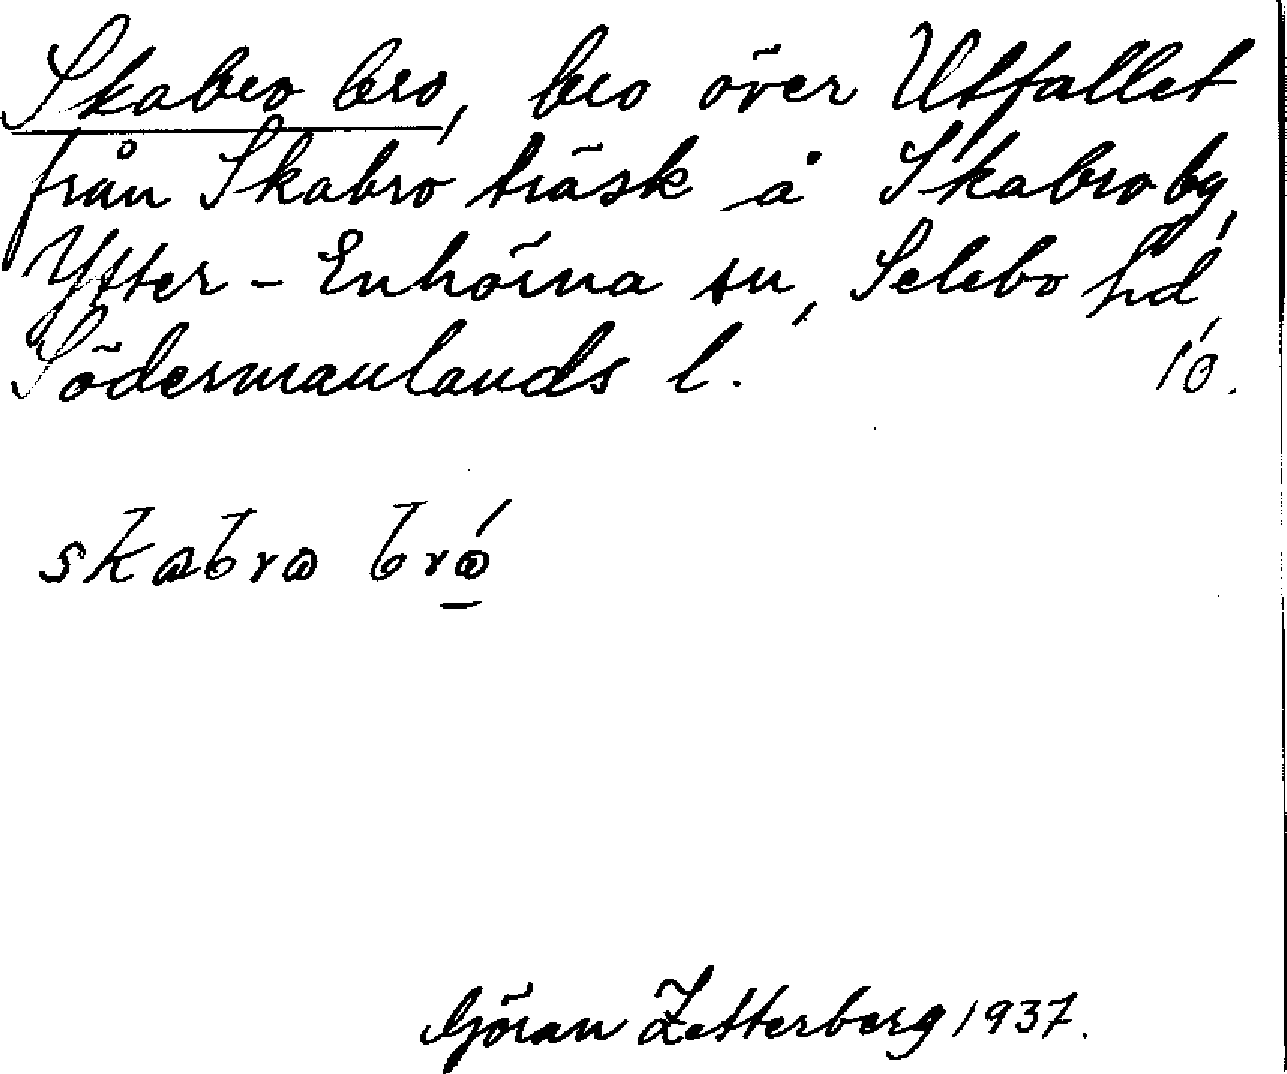 Skabro bro, bro över Utfallet
från Skabro träsk å Skabro by,
Ytter-Enhörna sn, Selebo hd,
Södermanlands l. 10.
skabro bró
Göran Zetterberg 1937.